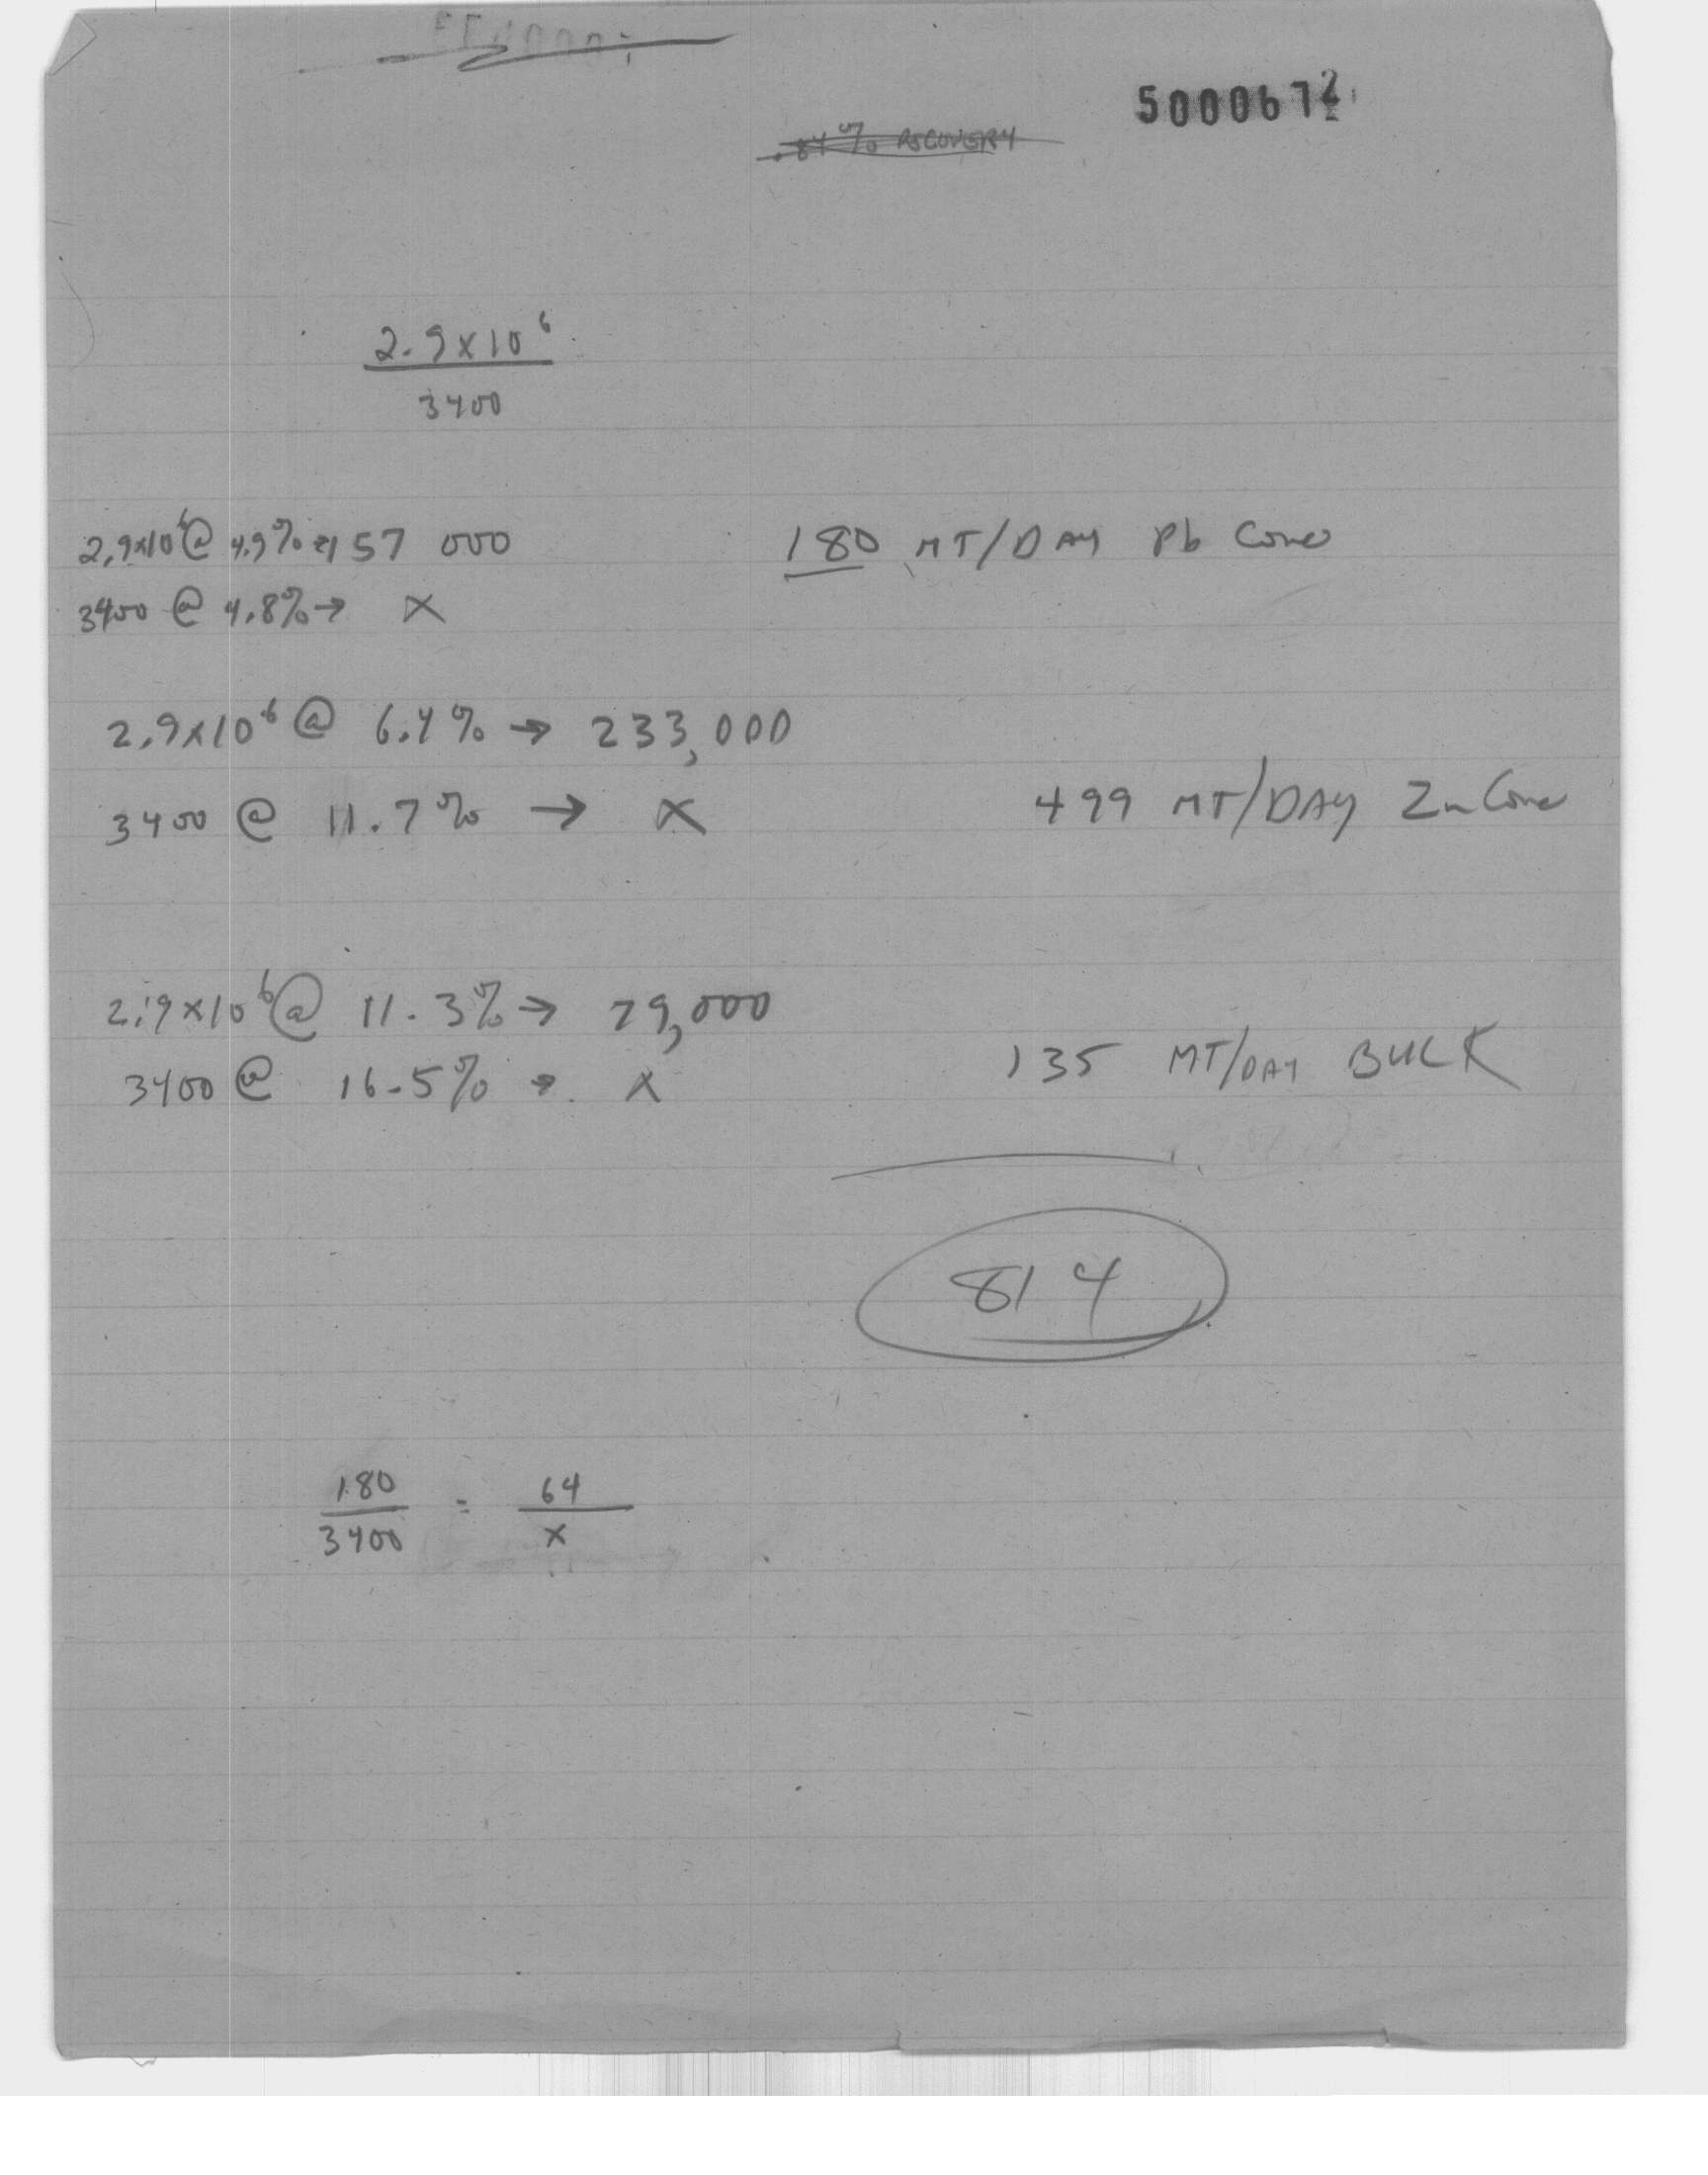 5000672
.84% RECOVERY
2.9x10⁶
3400
2.9x10⁶ @ 4.9% → 157 000
180 MT/DAY Pb Conc
3400 @ 4.8% → X
2.9x10⁶ @ 6.4% → 233,000
3400 @ 11.7% → X
499 MT/DAY Zn Conc
2.9x10⁶ @ 11.3% → 79,000
3400 @ 16.5% → X
135 MT/DAY BULK
814
180 = 64
3400 x